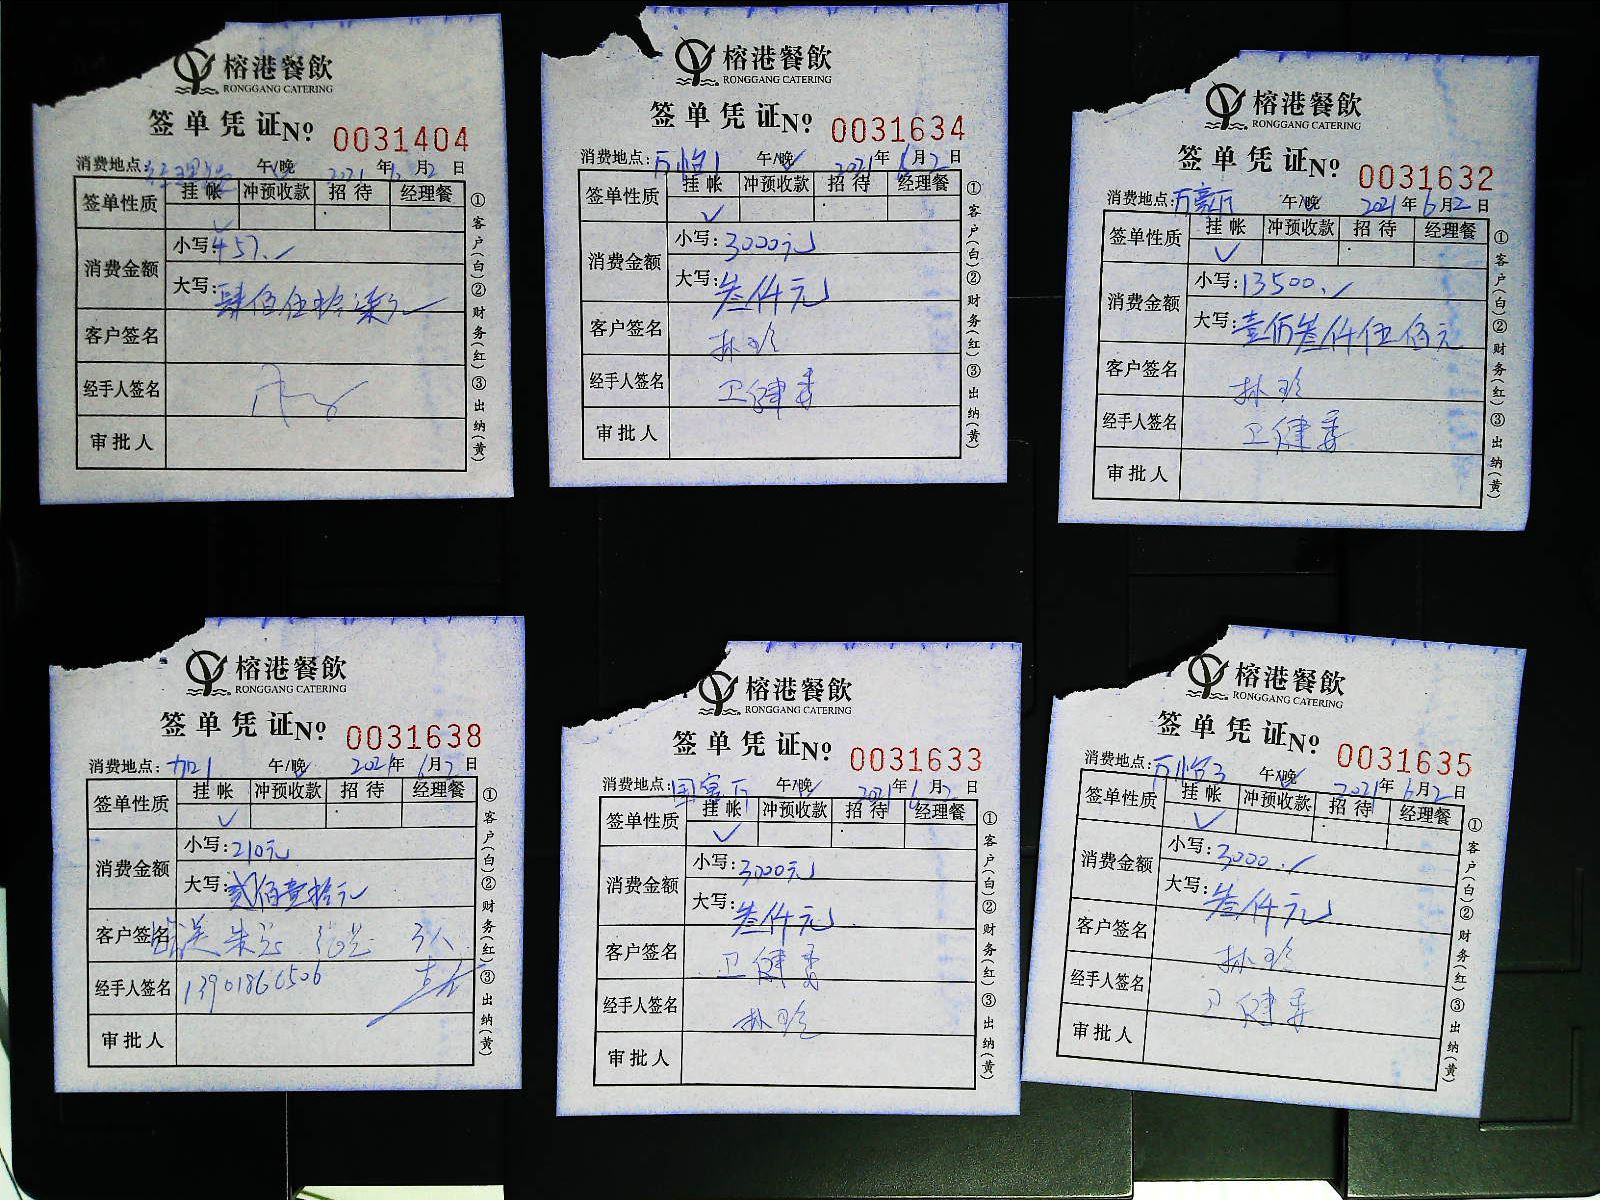 榕港餐飲
RONGGANG CATERING
签单凭证№ 0031404
消费地点: 午/晚 2021年6月2日
签单性质 挂帐 冲预收款 招待 经理餐
✓
消费金额 小写:457.
大写:肆佰伍拾柒元
客户签名
经手人签名
审批人
①客户(白)②财务(红)③出纳(黄)
榕港餐飲
RONGGANG CATERING
签单凭证№ 0031634
消费地点:万怡1 午/晚 2021年6月2日
签单性质 挂帐 冲预收款 招待 经理餐
✓
消费金额 小写:3000元
大写:叁仟元
客户签名 孙珍
经手人签名 卫健委
审批人
①客户(白)②财务(红)③出纳(黄)
榕港餐飲
RONGGANG CATERING
签单凭证№ 0031632
消费地点:万豪厅 午/晚 2021年6月2日
签单性质 挂帐 冲预收款 招待 经理餐
✓
消费金额 小写:13500.
大写:壹佰叁仟伍佰元
客户签名 孙珍
经手人签名 卫健委
审批人
①客户(白)②财务(红)③出纳(黄)
榕港餐飲
RONGGANG CATERING
签单凭证№ 0031638
消费地点: 午/晚 2021年6月2日
签单性质 挂帐 冲预收款 招待 经理餐
✓
消费金额 小写:210元
大写:贰佰壹拾元
客户签名 3人
经手人签名 13901866506
审批人
①客户(白)②财务(红)③出纳(黄)
榕港餐飲
RONGGANG CATERING
签单凭证№ 0031633
消费地点:国宴厅 午/晚 2021年6月2日
签单性质 挂帐 冲预收款 招待 经理餐
✓
消费金额 小写:3000元
大写:叁仟元
客户签名 卫健委
经手人签名 孙珍
审批人
①客户(白)②财务(红)③出纳(黄)
榕港餐飲
RONGGANG CATERING
签单凭证№ 0031635
消费地点:万怡3 午/晚 2021年6月2日
签单性质 挂帐 冲预收款 招待 经理餐
✓
消费金额 小写:3000.
大写:叁仟元
客户签名 孙珍
经手人签名 卫健委
审批人
①客户(白)②财务(红)③出纳(黄)